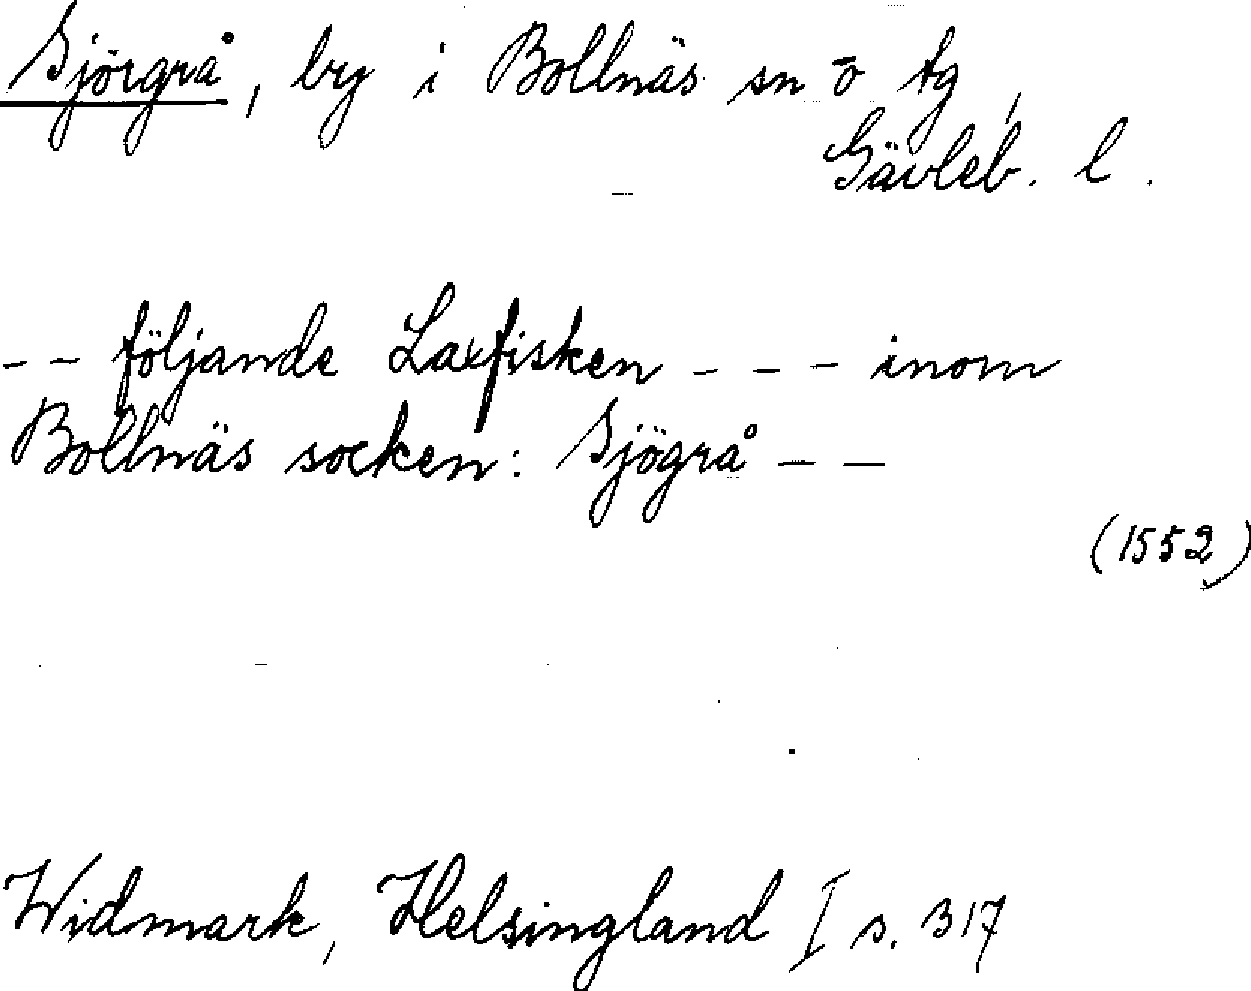 Sjörgrå, by i Bollnäs sn o tg,
Gävleb. l.
-- följande Laxfisken --- inom
Bollnäs socken: Sjögrå --
(1552)
Widmark, Helsingland I s. 317